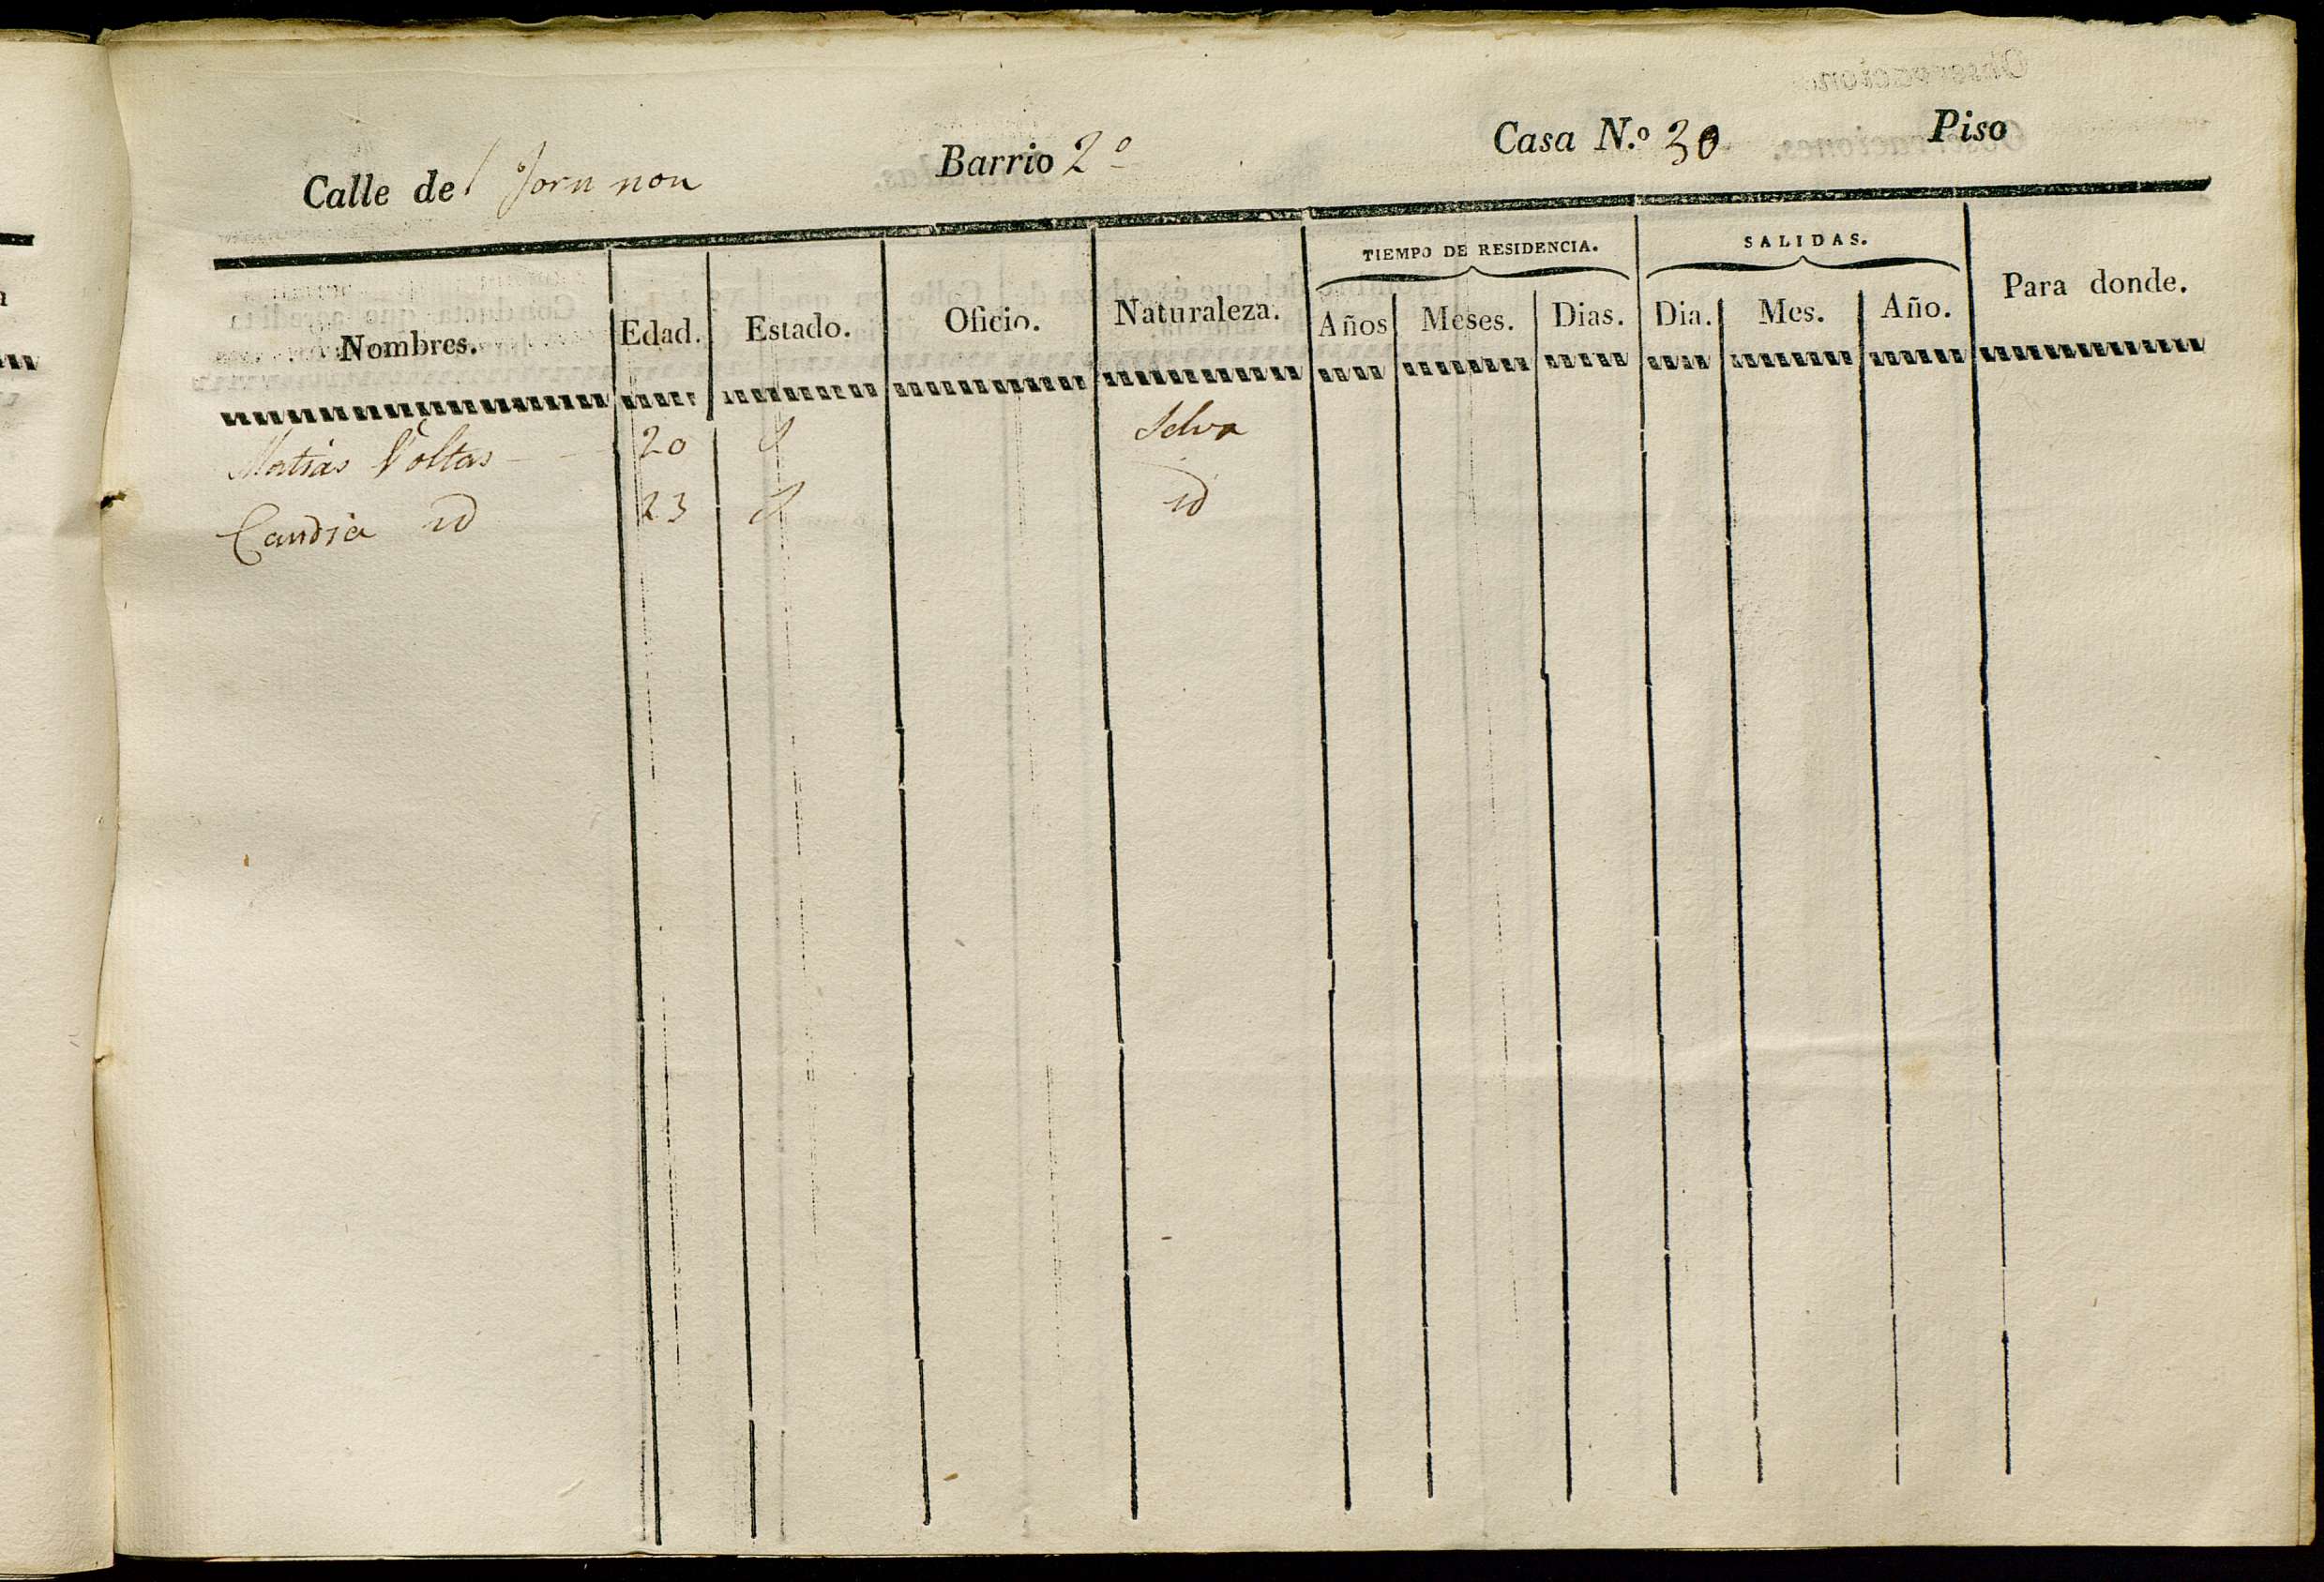 Calle del forn nou Barrio 2º Casa N.º 30 Piso
TIEMPO DE RESIDENCIA. SALIDAS.
Nombres. Edad. Estado. Oficio. Naturaleza. Años Meses. Dias. Dia. Mes. Año. Para donde.
Matias Voltas 20 Selva
Candia id 23 id